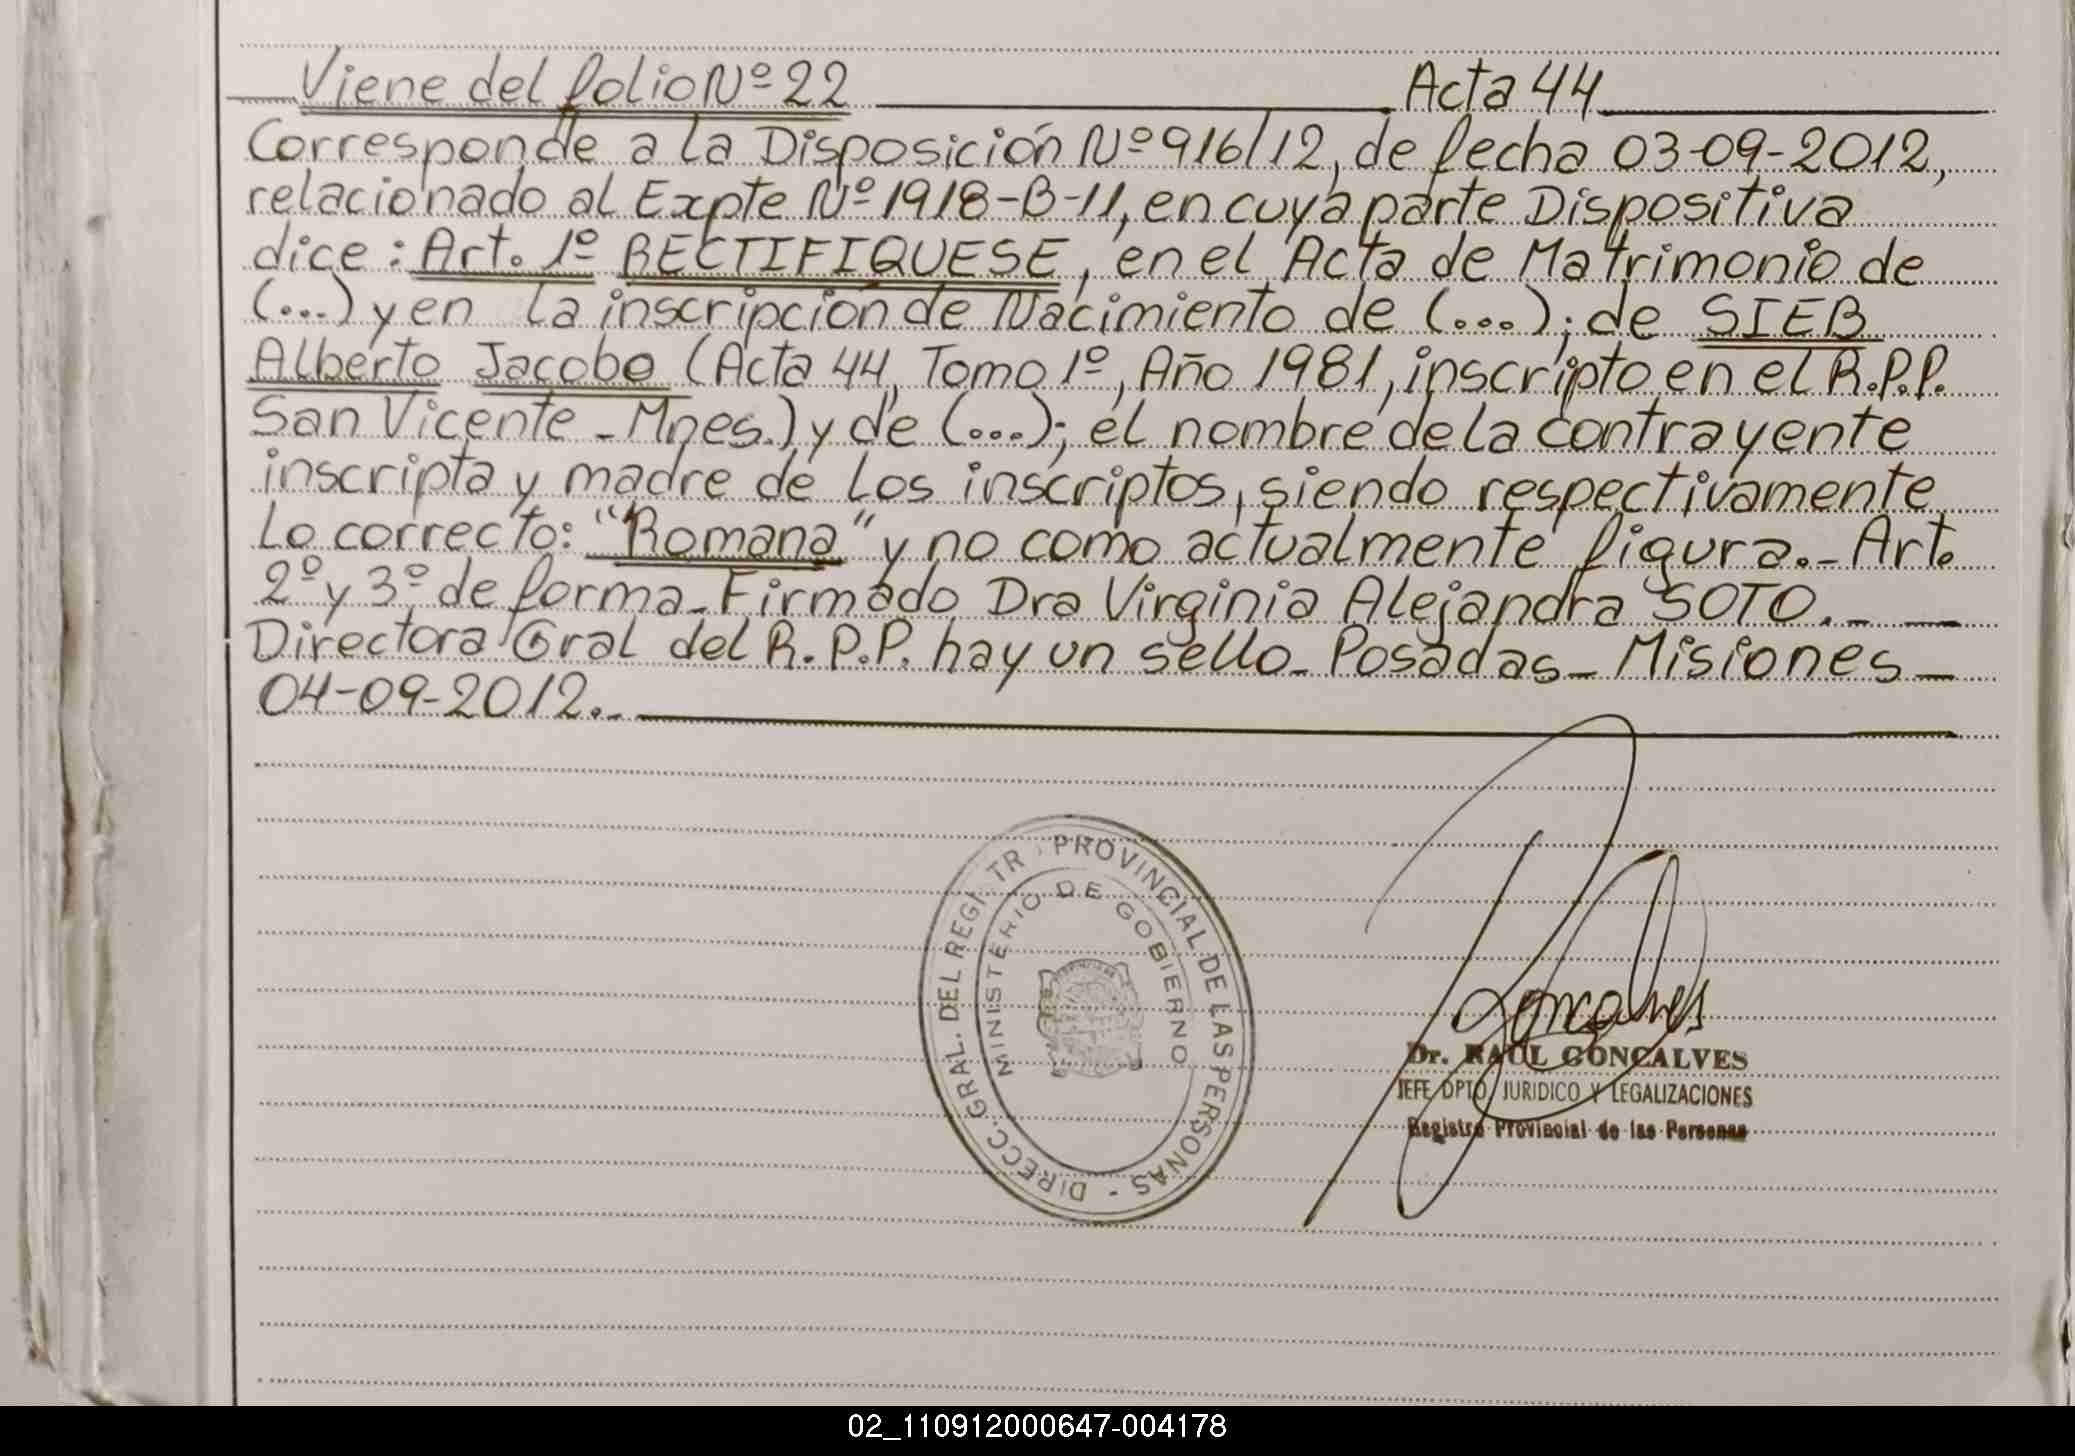 Viene del folio Nº 22 Acta 44
Corresponde a la Disposición Nº 916/12, de fecha 03-09-2012,
relacionado al Expte Nº 1918-B-11, en cuya parte Dispositiva
dice: Art. 1º RECTIFIQUESE, en el Acta de Matrimonio de
(...) y en la inscripción de Nacimiento de (...); de SIEB
Alberto Jacobo (Acta 44, Tomo 1º, Año 1981, inscripto en el R.P.P.
San Vicente - Mnes.) y de (...); el nombre de la contrayente
inscripta y madre de los inscriptos, siendo respectivamente
lo correcto: "Romana" y no como actualmente figura.- Art.
2º y 3º de forma - Firmado Dra Virginia Alejandra SOTO.-
Directora Gral del R.P.P. hay un sello - Posadas - Misiones -
04-09-2012.-
DIRECC. GRAL. DEL REGISTRO PROVINCIAL DE LAS PERSONAS -
MINISTERIO DE GOBIERNO
Goncalves
Dr. RAUL GONCALVES
JEFE DPTO JURIDICO Y LEGALIZACIONES
Registro Provincial de las Personas
02_110912000647-004178